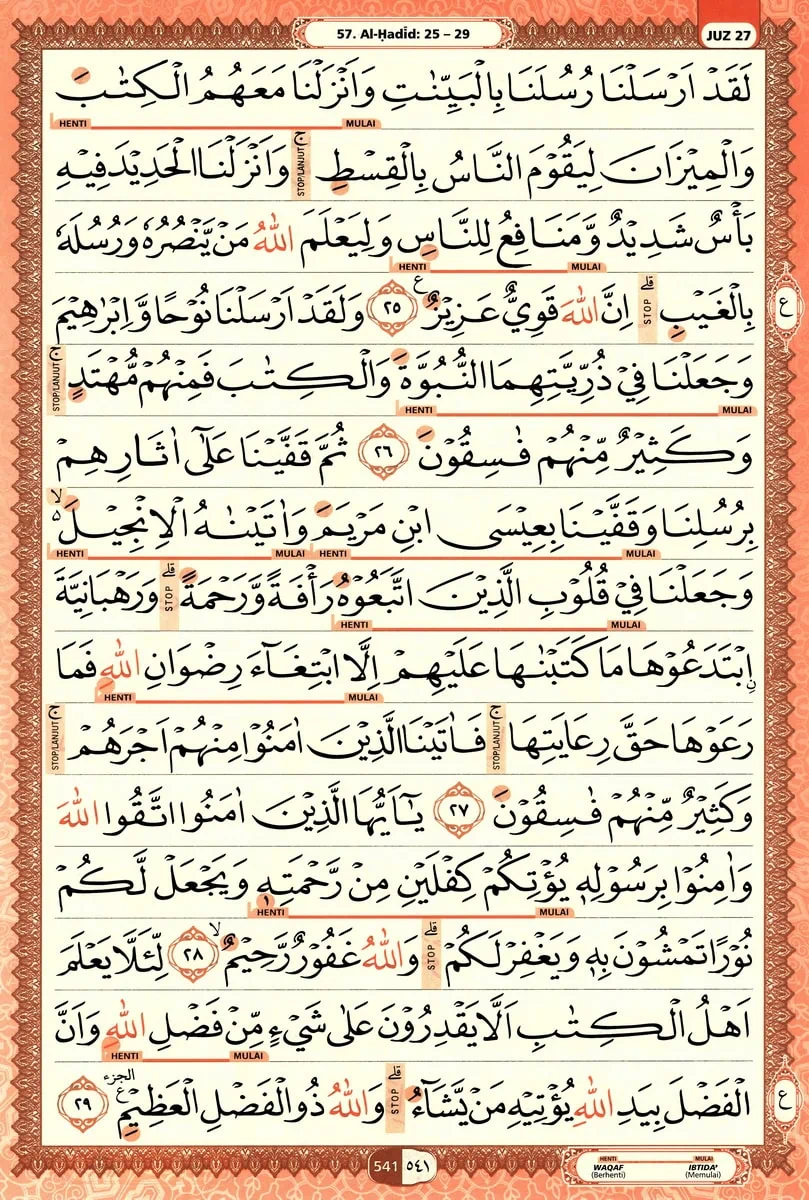 57. Al-Ḥadīd: 25 – 29
JUZ 27
لَقَدْ اَرْسَلْنَا رُسُلَنَا بِالْبَيِّنٰتِ وَاَنْزَلْنَا مَعَهُمُ الْكِتٰبَ
HENTI MULAI
وَالْمِيْزَانَ لِيَقُوْمَ النَّاسُ بِالْقِسْطِۚ وَاَنْزَلْنَا الْحَدِيْدَ فِيْهِ
STOP/LANJUT
بَأْسٌ شَدِيْدٌ وَّمَنَافِعُ لِلنَّاسِ وَلِيَعْلَمَ اللّٰهُ مَنْ يَّنْصُرُهٗ وَرُسُلَهٗ
HENTI MULAI
بِالْغَيْبِۗ اِنَّ اللّٰهَ قَوِيٌّ عَزِيْزٌ ࣖ ٢٥ وَلَقَدْ اَرْسَلْنَا نُوْحًا وَّاِبْرٰهِيْمَ
STOP
ع
وَجَعَلْنَا فِيْ ذُرِّيَّتِهِمَا النُّبُوَّةَ وَالْكِتٰبَ فَمِنْهُمْ مُّهْتَدٍۚ
STOP/LANJUT
HENTI MULAI
وَكَثِيْرٌ مِّنْهُمْ فٰسِقُوْنَ ٢٦ ثُمَّ قَفَّيْنَا عَلٰٓى اٰثَارِهِمْ
بِرُسُلِنَا وَقَفَّيْنَا بِعِيْسَى ابْنِ مَرْيَمَ وَاٰتَيْنٰهُ الْاِنْجِيْلَ ەۙ
HENTI MULAI HENTI MULAI
وَجَعَلْنَا فِيْ قُلُوْبِ الَّذِيْنَ اتَّبَعُوْهُ رَأْفَةً وَّرَحْمَةًۗ وَرَهْبَانِيَّةَ
STOP
HENTI MULAI
ۨابْتَدَعُوْهَا مَا كَتَبْنٰهَا عَلَيْهِمْ اِلَّا ابْتِغَاۤءَ رِضْوَانِ اللّٰهِ فَمَا
HENTI MULAI
رَعَوْهَا حَقَّ رِعَايَتِهَاۚ فَاٰتَيْنَا الَّذِيْنَ اٰمَنُوْا مِنْهُمْ اَجْرَهُمْۚ
STOP/LANJUT STOP/LANJUT
وَكَثِيْرٌ مِّنْهُمْ فٰسِقُوْنَ ٢٧ يٰٓاَيُّهَا الَّذِيْنَ اٰمَنُوا اتَّقُوا اللّٰهَ
وَاٰمِنُوْا بِرَسُوْلِهٖ يُؤْتِكُمْ كِفْلَيْنِ مِنْ رَّحْمَتِهٖ وَيَجْعَلْ لَّكُمْ
HENTI MULAI
نُوْرًا تَمْشُوْنَ بِهٖ وَيَغْفِرْ لَكُمْۗ وَاللّٰهُ غَفُوْرٌ رَّحِيْمٌۙ ٢٨ لِّئَلَّا يَعْلَمَ
STOP
اَهْلُ الْكِتٰبِ اَلَّا يَقْدِرُوْنَ عَلٰى شَيْءٍ مِّنْ فَضْلِ اللّٰهِ وَاَنَّ
HENTI MULAI
الجزء
الْفَضْلَ بِيَدِ اللّٰهِ يُؤْتِيْهِ مَنْ يَّشَاۤءُۗ وَاللّٰهُ ذُو الْفَضْلِ الْعَظِيْمِ ࣖ ٢٩
STOP
ع
541 ٥٤١
HENTI MULAI
WAQAF IBTIDA'
(Berhenti) (Memulai)